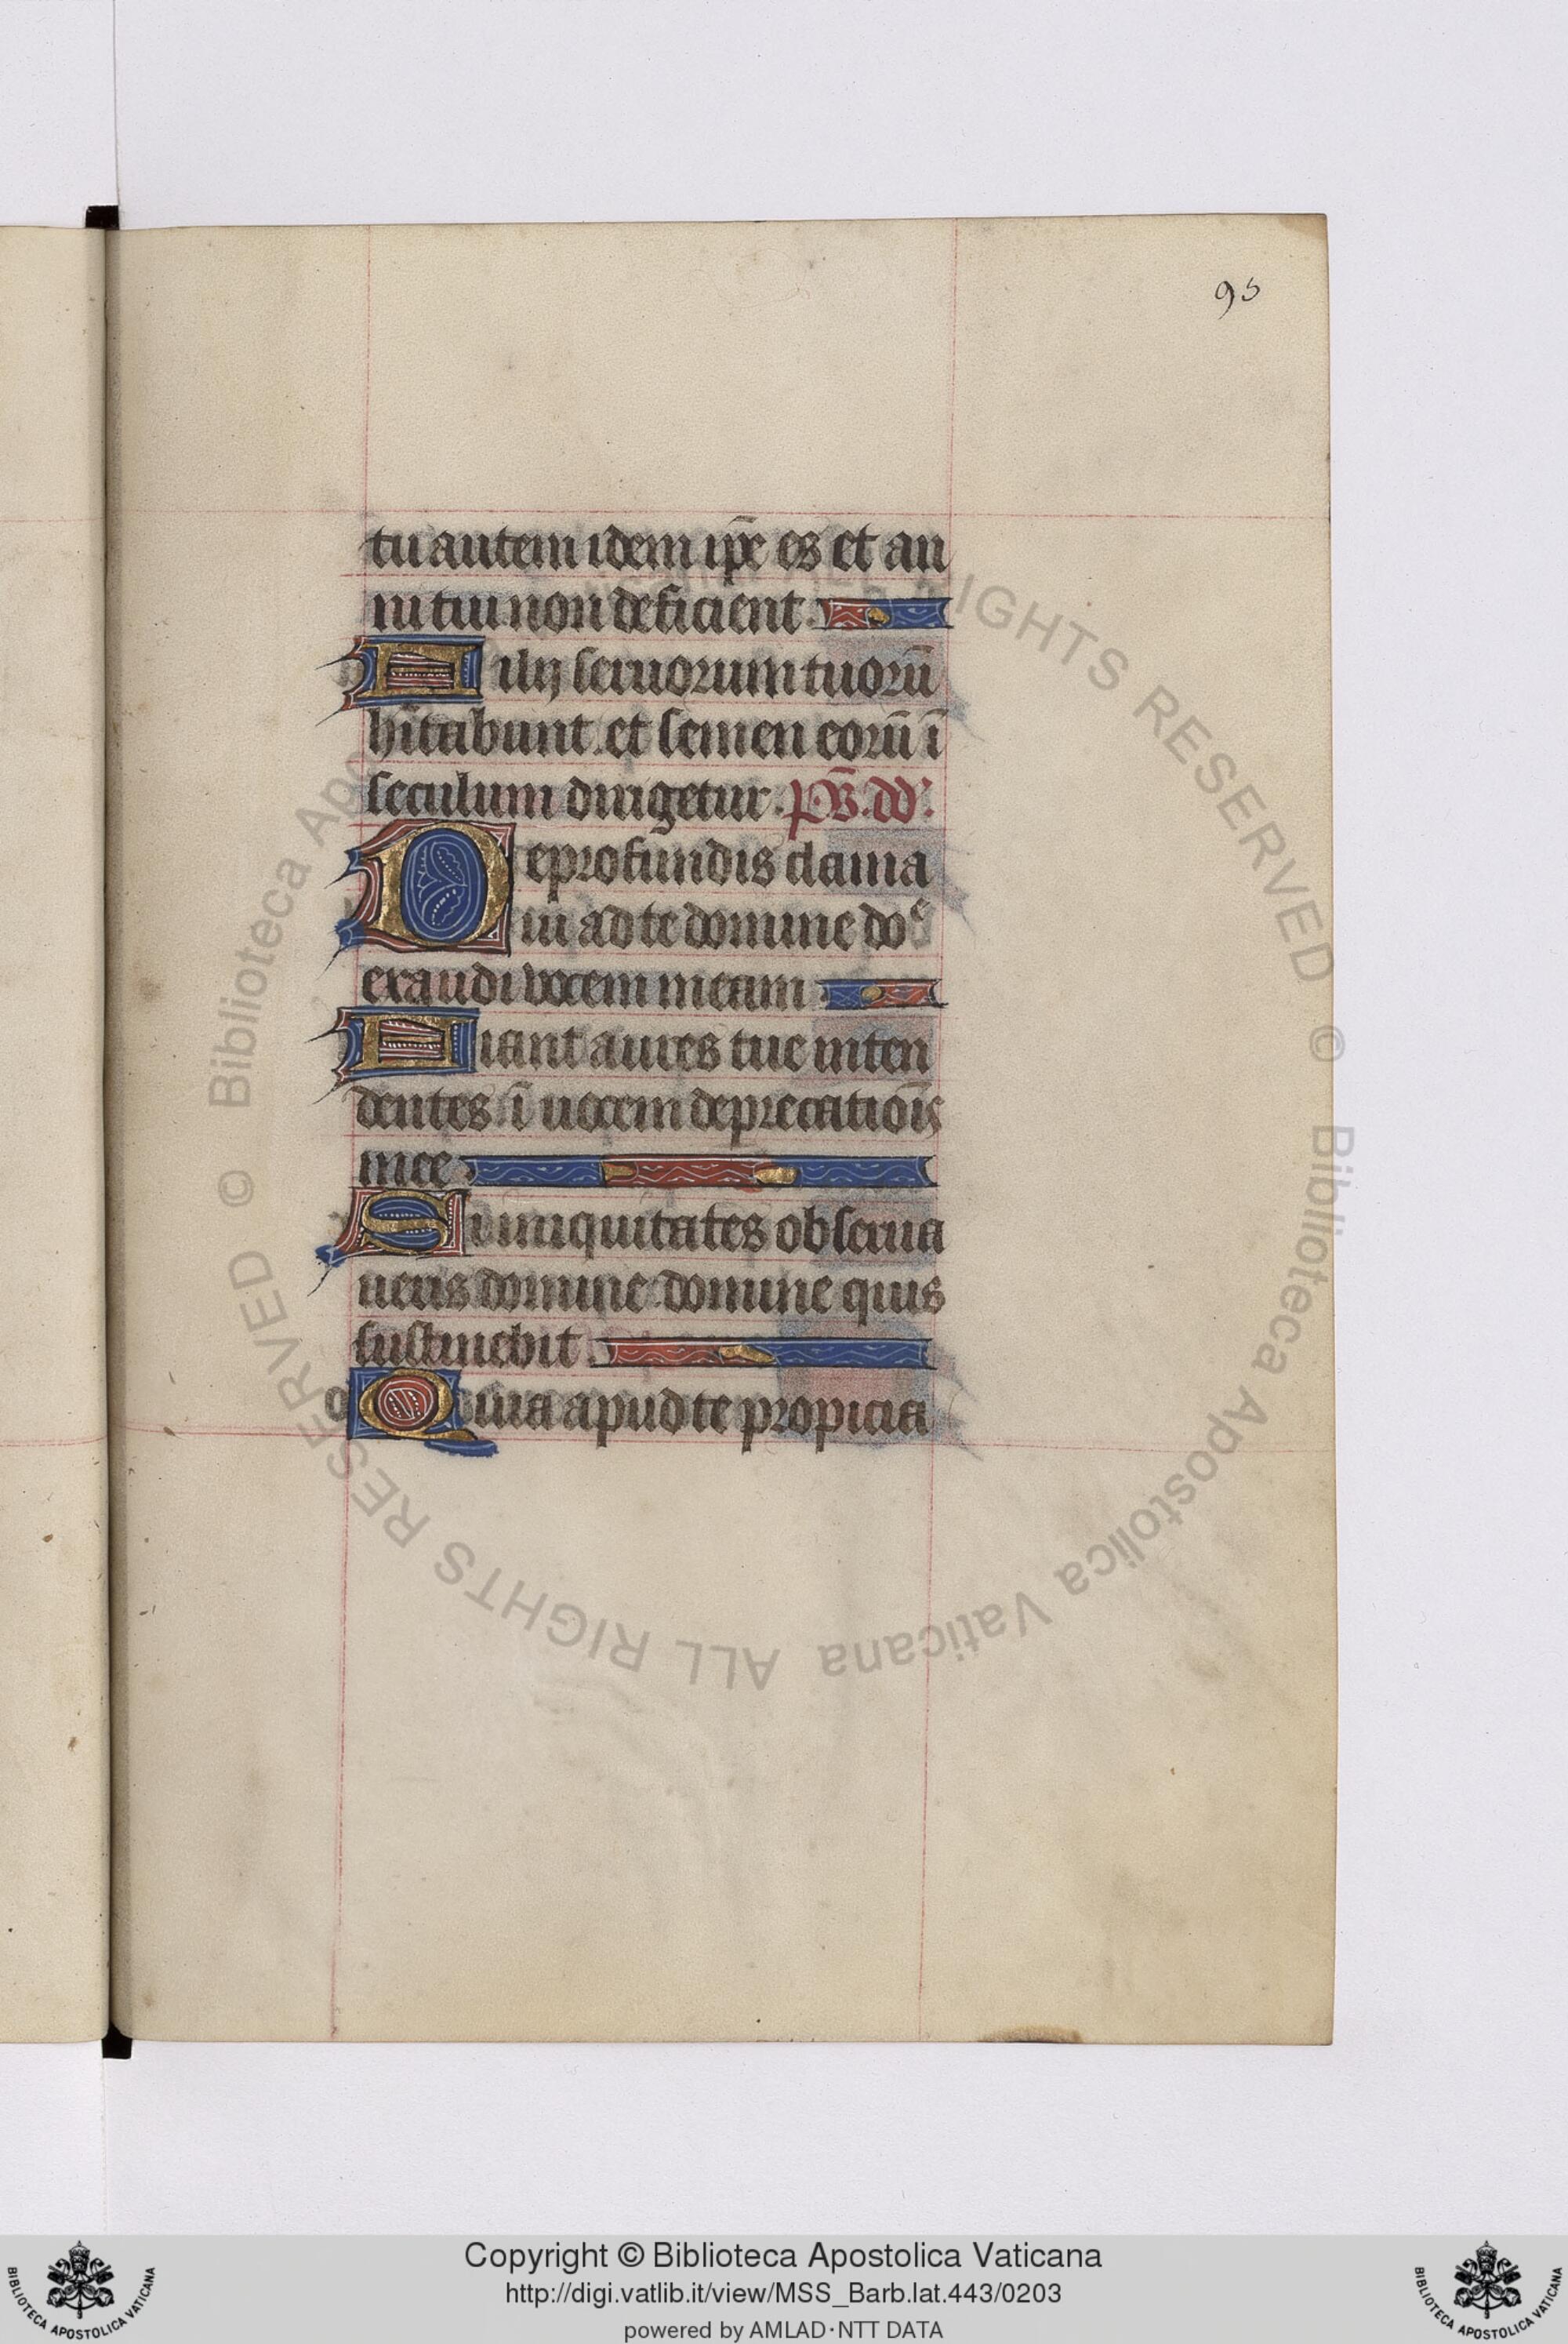 95
tu autem idem ip̄e es et an
ni tui non deficient.
Filij seruorum tuorū
hītabunt. et semen eorū ī
seculum dirigetur. p̄s. dd'.
De profundis clama
ui ad te domine do
exaudi vocem meam
Fiant aures tue inten
dentes. ī uocem deprecatiōis
mee
Si iniquitates obserua
ueris domine. domine quis
sustinebit
Quia apud te propicia
© Biblioteca Apostolica Vaticana ALL RIGHTS RESERVED
Copyright © Biblioteca Apostolica Vaticana
http://digi.vatlib.it/view/MSS_Barb.lat.443/0203
powered by AMLAD·NTT DATA
BIBLIOTECA APOSTOLICA VATICANA
BIBLIOTECA APOSTOLICA VATICANA